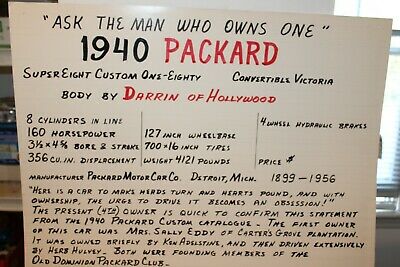 "ASK THE MAN WHO OWNS ONE"
1940 PACKARD
SUPER EIGHT CUSTOM ONE-EIGHTY CONVERTIBLE VICTORIA
BODY BY DARRIN OF HOLLYWOOD
8 CYLINDERS IN LINE 4 WHEEL HYDRAULIC BRAKES
160 HORSEPOWER 127 INCH WHEELBASE
3½ x 4⅝ BORE & STROKE 700x16 INCH TIRES
356 CU. IN. DISPLACEMENT WEIGHT 4121 POUNDS PRICE $
MANUFACTURER PACKARD MOTOR CAR CO. DETROIT, MICH. 1899-1956
"HERE IS A CAR TO MAKE HEADS TURN AND HEARTS POUND, AND WITH
OWNERSHIP, THE URGE TO DRIVE IT BECOMES AN OBSESSION!"
THE PRESENT (4TH) OWNER IS QUICK TO CONFIRM THIS STATEMENT
FROM THE 1940 PACKARD CUSTOM CATALOGUE. THE FIRST OWNER
OF THIS CAR WAS MRS. SALLY EDDY OF CARTER'S GROVE PLANTATION.
IT WAS OWNED BRIEFLY BY KEN ADELSTINE, AND THEN DRIVEN EXTENSIVELY
BY HERB HULVEY. BOTH WERE FOUNDING MEMBERS OF THE
OLD DOMINION PACKARD CLUB.